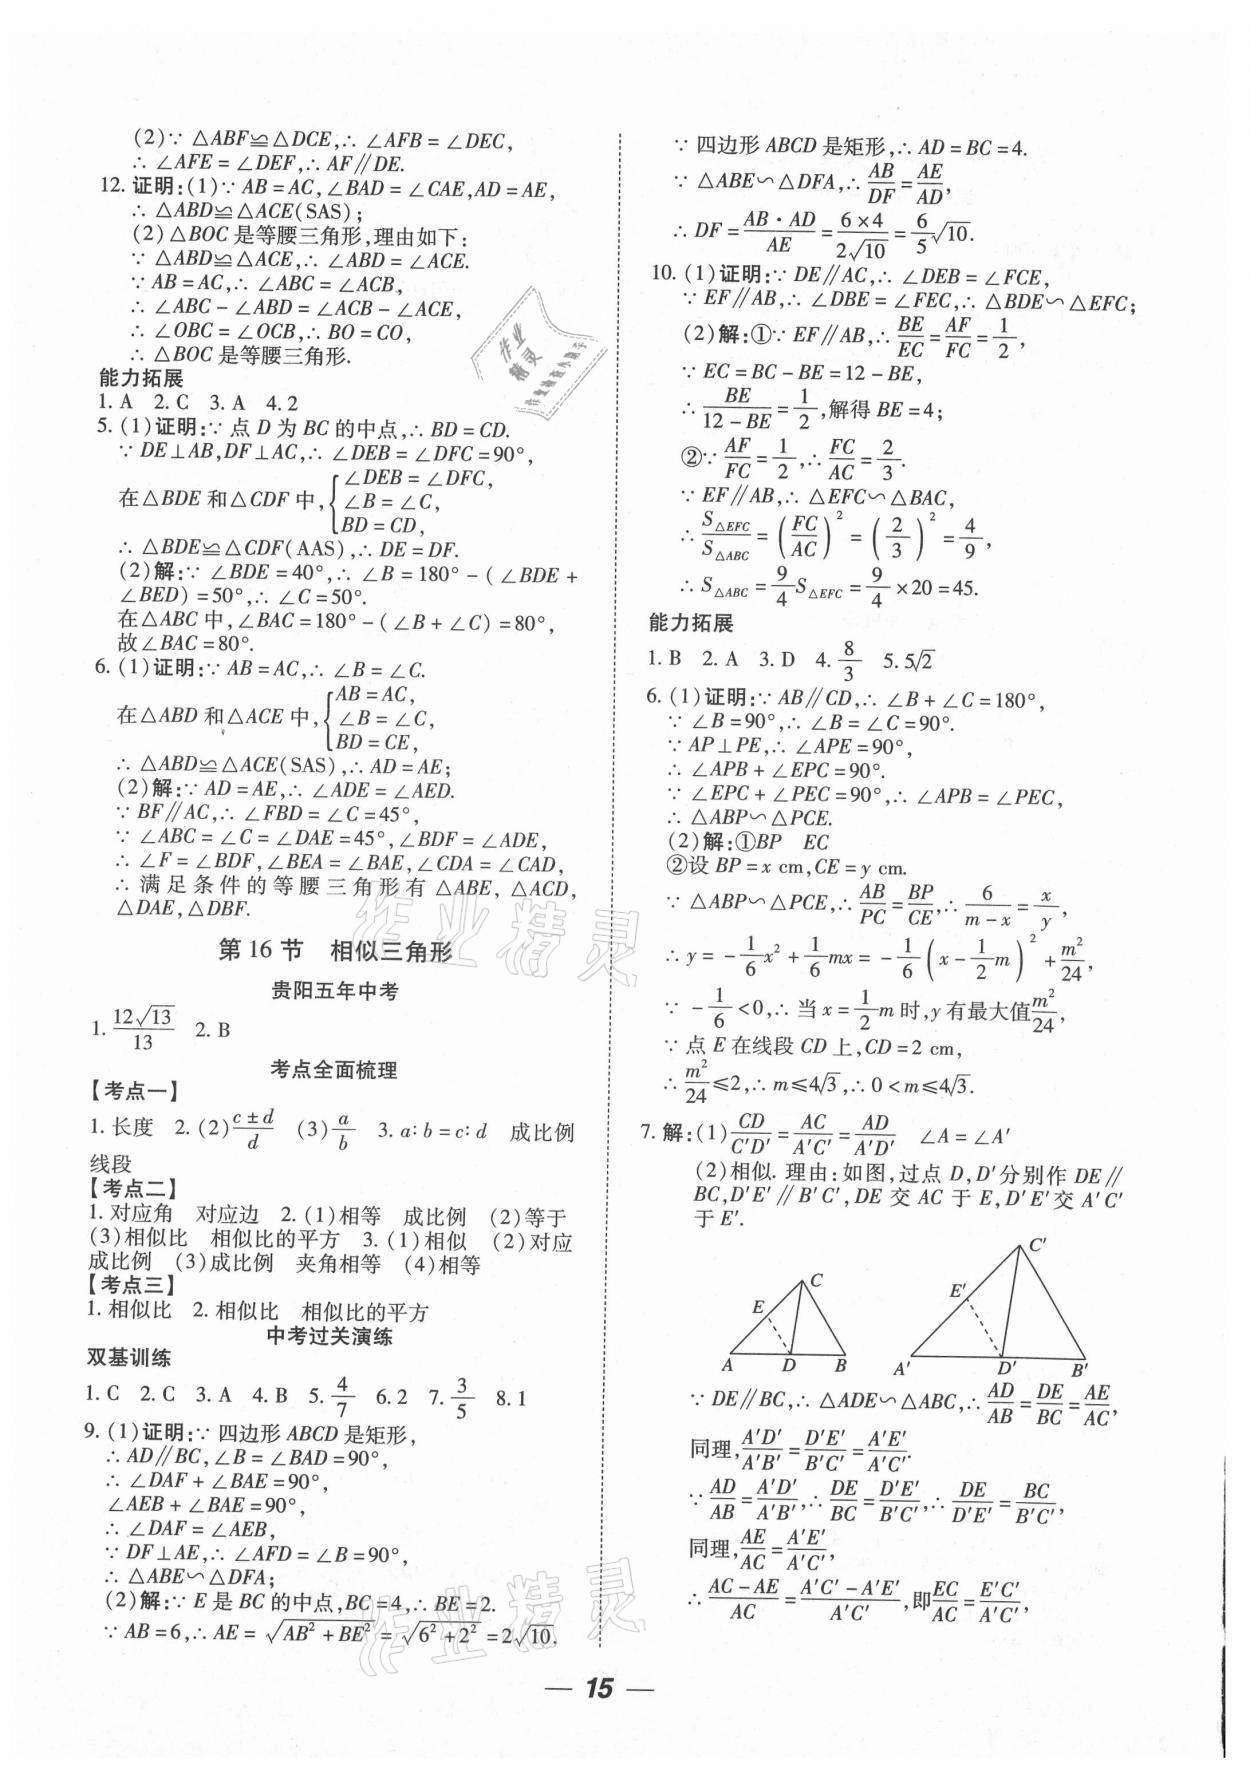 (2)∵ △ABF≌△DCE,∴ ∠AFB = ∠DEC,
∴ ∠AFE = ∠DEF,∴ AF∥DE.
12. 证明:(1)∵ AB = AC,∠BAD = ∠CAE,AD = AE,
∴ △ABD≌△ACE(SAS);
(2)△BOC 是等腰三角形,理由如下:
∵ △ABD≌△ACE,∴ ∠ABD = ∠ACE.
∵ AB = AC,∴ ∠ABC = ∠ACB,
∴ ∠ABC - ∠ABD = ∠ACB - ∠ACE,
∴ ∠OBC = ∠OCB,∴ BO = CO,
∴ △BOC 是等腰三角形.
能力拓展
1. A 2. C 3. A 4. 2
5. (1)证明:∵ 点 D 为 BC 的中点,∴ BD = CD.
∵ DE⊥AB,DF⊥AC,∴ ∠DEB = ∠DFC = 90°,
在△BDE 和△CDF 中,{∠DEB = ∠DFC,
∠B = ∠C,
BD = CD,
∴ △BDE≌△CDF(AAS),∴ DE = DF.
(2)解:∵ ∠BDE = 40°,∴ ∠B = 180° - (∠BDE +
∠BED) = 50°,∴ ∠C = 50°.
在△ABC 中,∠BAC = 180° - (∠B + ∠C) = 80°,
故∠BAC = 80°.
6. (1)证明:∵ AB = AC,∴ ∠B = ∠C.
在△ABD 和△ACE 中,{AB = AC,
∠B = ∠C,
BD = CE,
∴ △ABD≌△ACE(SAS),∴ AD = AE;
(2)解:∵ AD = AE,∴ ∠ADE = ∠AED.
∵ BF∥AC,∴ ∠FBD = ∠C = 45°,
∵ ∠ABC = ∠C = ∠DAE = 45°,∠BDF = ∠ADE,
∴ ∠F = ∠BDF,∠BEA = ∠BAE,∠CDA = ∠CAD,
∴ 满足条件的等腰三角形有△ABE, △ACD,
△DAE,△DBF.
第 16 节 相似三角形
贵阳五年中考
1. 12√13/13 2. B
考点全面梳理
【考点一】
1. 长度 2. (2)(c±d)/d (3)a/b 3. a∶b = c∶d 成比例
线段
【考点二】
1. 对应角 对应边 2. (1)相等 成比例 (2)等于
(3)相似比 相似比的平方 3. (1)相似 (2)对应
成比例 (3)成比例 夹角相等 (4)相等
【考点三】
1. 相似比 2. 相似比 相似比的平方
中考过关演练
双基训练
1. C 2. C 3. A 4. B 5. 4/7 6. 2 7. 3/5 8. 1
9. (1)证明:∵ 四边形 ABCD 是矩形,
∴ AD∥BC,∠B = ∠BAD = 90°,
∴ ∠DAF + ∠BAE = 90°,
∠AEB + ∠BAE = 90°,
∴ ∠DAF = ∠AEB,
∵ DF⊥AE,∴ ∠AFD = ∠B = 90°,
∴ △ABE∽△DFA;
(2)解:∵ E 是 BC 的中点,BC = 4,∴ BE = 2.
∵ AB = 6,∴ AE = √(AB² + BE²) = √(6² + 2²) = 2√10.
∵ 四边形 ABCD 是矩形,∴ AD = BC = 4.
∵ △ABE∽△DFA,∴ AB/DF = AE/AD,
∴ DF = AB·AD/AE = 6×4/2√10 = 6/5 √10.
10. (1)证明:∵ DE∥AC,∴ ∠DEB = ∠FCE,
∵ EF∥AB,∴ ∠DBE = ∠FEC,∴ △BDE∽△EFC;
(2)解:①∵ EF∥AB,∴ BE/EC = AF/FC = 1/2,
∵ EC = BC - BE = 12 - BE,
∴ BE/(12 - BE) = 1/2,解得 BE = 4;
②∵ AF/FC = 1/2,∴ FC/AC = 2/3.
∵ EF∥AB,∴ △EFC∽△BAC,
∴ S△EFC/S△ABC = (FC/AC)² = (2/3)² = 4/9,
∴ S△ABC = 9/4 S△EFC = 9/4 × 20 = 45.
能力拓展
1. B 2. A 3. D 4. 8/3 5. 5√2
6. (1)证明:∵ AB∥CD,∴ ∠B + ∠C = 180°,
∵ ∠B = 90°,∴ ∠B = ∠C = 90°.
∵ AP⊥PE,∴ ∠APE = 90°,
∴ ∠APB + ∠EPC = 90°.
∵ ∠EPC + ∠PEC = 90°,∴ ∠APB = ∠PEC,
∴ △ABP∽△PCE.
(2)解:①BP EC
②设 BP = x cm,CE = y cm.
∵ △ABP∽△PCE,∴ AB/PC = BP/CE,∴ 6/(m - x) = x/y,
∴ y = -1/6 x² + 1/6 mx = -1/6 (x - 1/2 m)² + m²/24,
∵ -1/6 < 0,∴ 当 x = 1/2 m 时,y 有最大值 m²/24,
∵ 点 E 在线段 CD 上,CD = 2 cm,
∴ m²/24 ≤ 2,∴ m ≤ 4√3,∴ 0 < m ≤ 4√3.
7. 解:(1)CD/C′D′ = AC/A′C′ = AD/A′D′ ∠A = ∠A′
(2)相似. 理由:如图,过点 D,D′分别作 DE∥
BC,D′E′∥B′C′,DE 交 AC 于 E,D′E′交 A′C′
于 E′.
C
E
A D B
C′
E′
A′ D′ B′
∵ DE∥BC,∴ △ADE∽△ABC,∴ AD/AB = DE/BC = AE/AC,
同理,A′D′/A′B′ = D′E′/B′C′ = A′E′/A′C′.
∵ AD/AB = A′D′/A′B′,∴ DE/BC = D′E′/B′C′,∴ DE/D′E′ = BC/B′C′,
同理,AE/AC = A′E′/A′C′,
∴ (AC - AE)/AC = (A′C′ - A′E′)/A′C′,即 EC/AC = E′C′/A′C′,
— 15 —
作业精灵
作业精灵
作业精灵